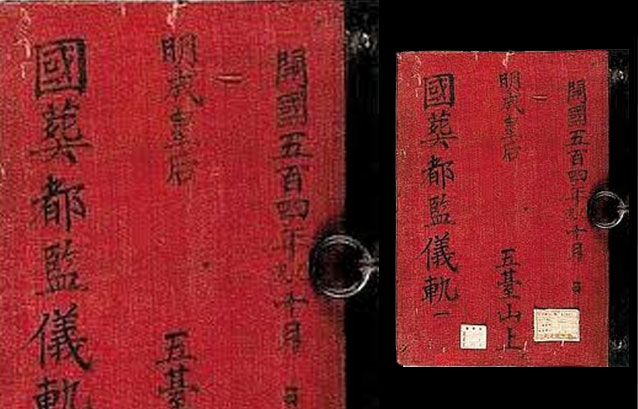 開國五百四年 十月 日
明成皇后 五臺
國葬都監儀軌
開國五百四年 十月 日
明成皇后 五臺山上
國葬都監儀軌一